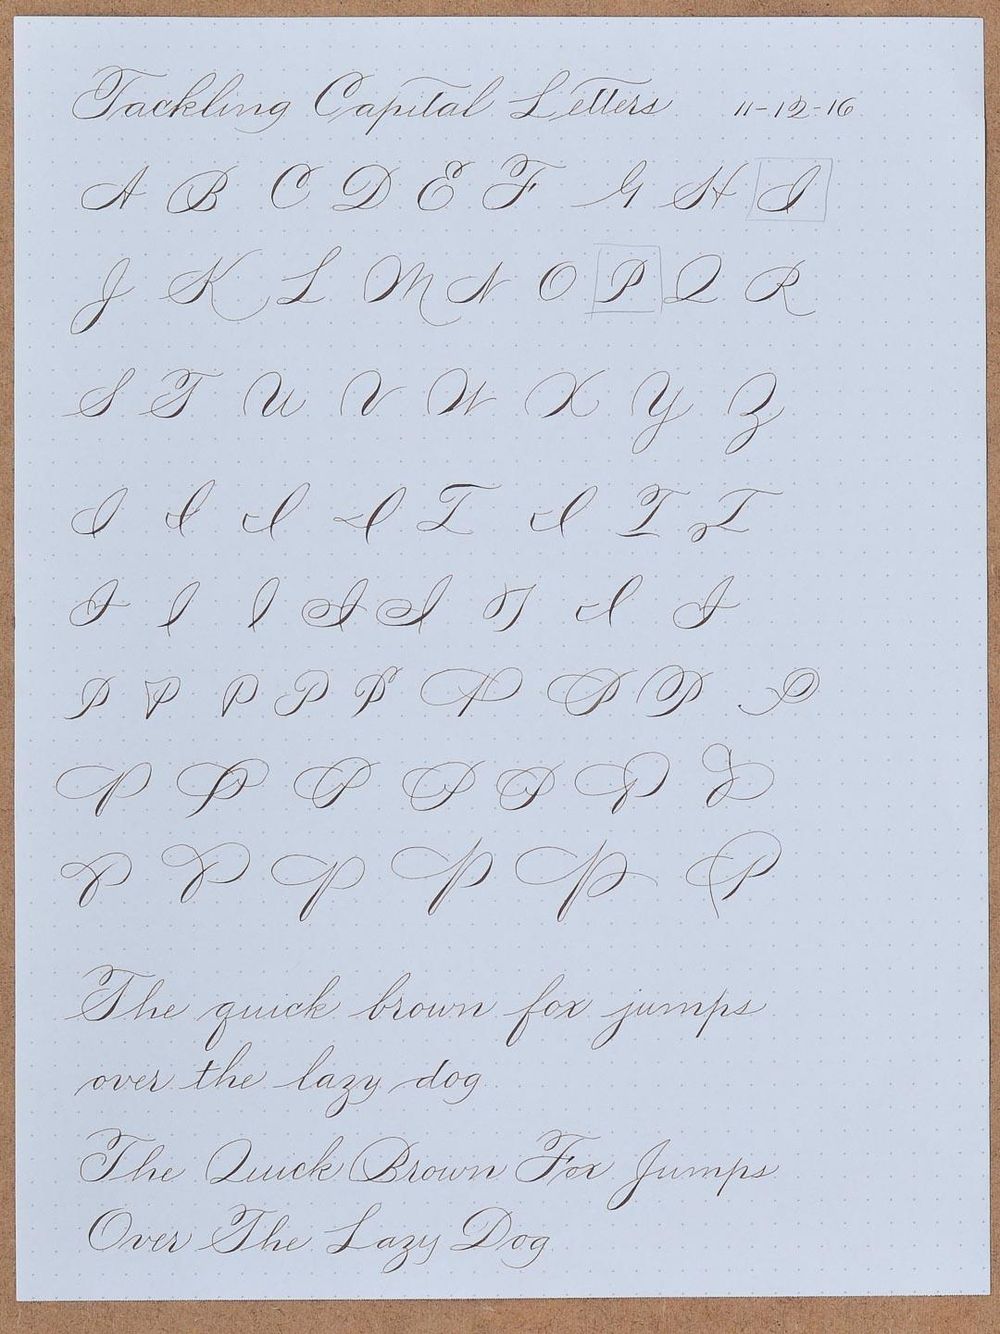 Tackling Capital Letters 11-12-16
A B C D E F G H I
J K L M N O P Q R
S T U V W X Y Z
I I I I I I I I
I I I I I I I I
P P P P P P P P P
P P P P P P P
P P P P P P
The quick brown fox jumps
over the lazy dog
The Quick Brown Fox Jumps
Over The Lazy Dog